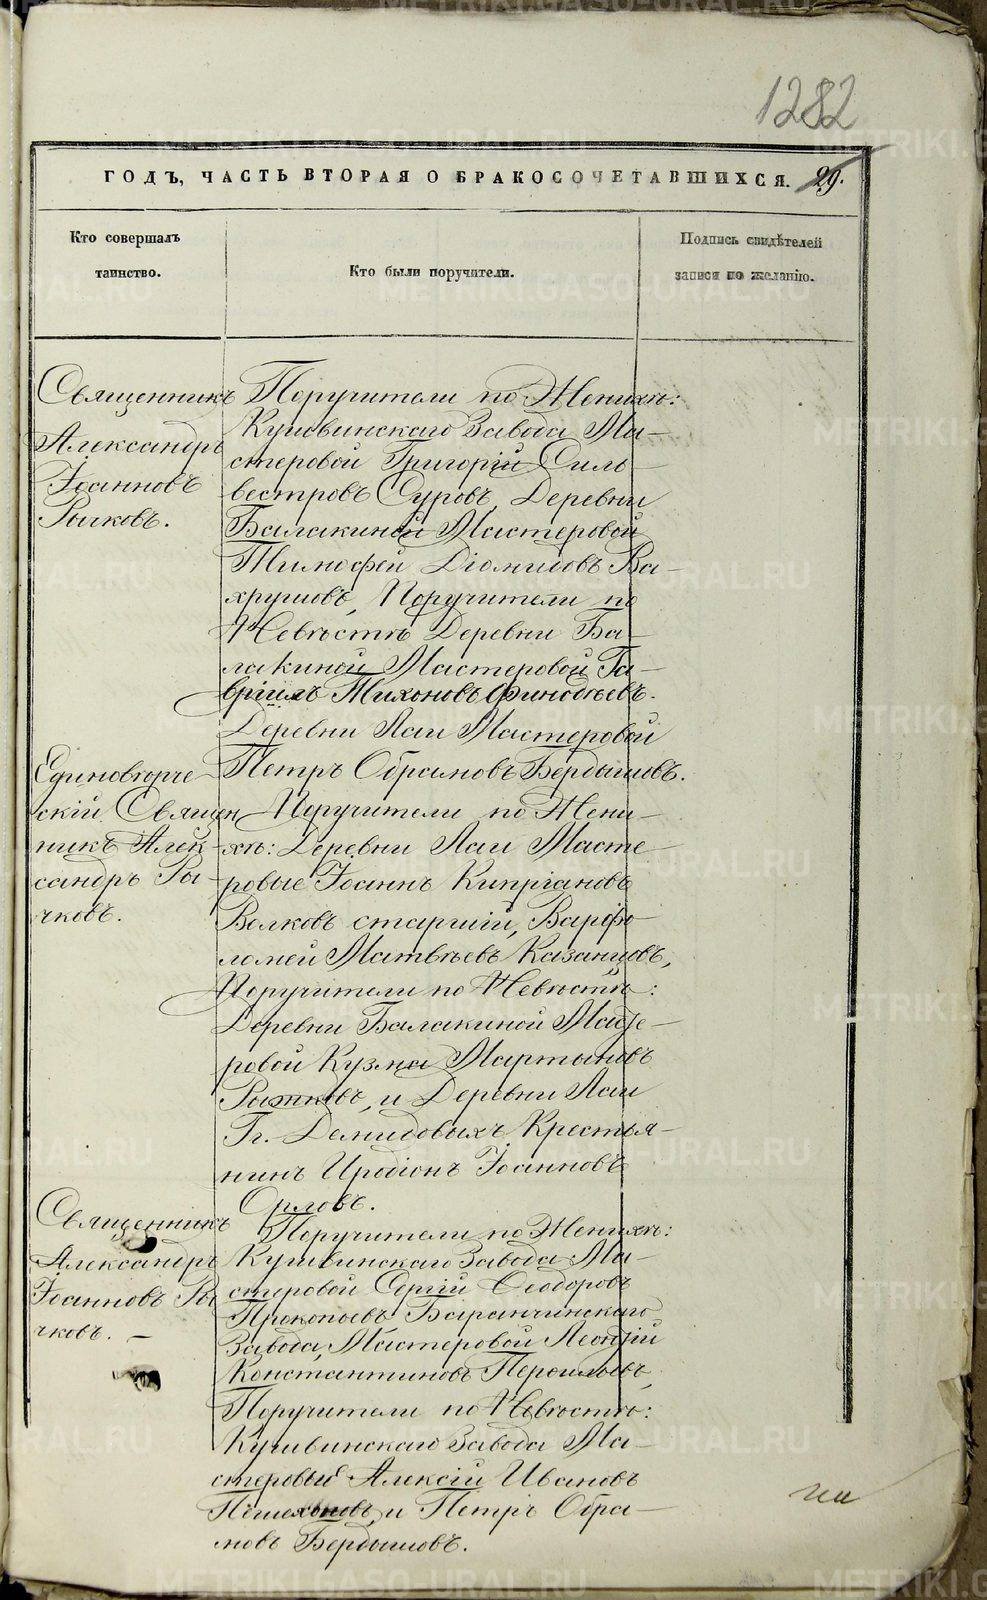 1282
ГОДЪ, ЧАСТЬ ВТОРАЯ О БРАКОСОЧЕТАВШИХСЯ. 29.
Кто совершалъ
таинство.
Кто были поручители.
Подпись свидѣтелей
записи по желанію.
Священникъ
Александръ
Іоанновъ
Рычковъ.
Поручители по Женихѣ:
Кушвинскаго Завода Ма-
стеровой Григорій Силь-
вестровъ Суровъ, Деревни
Балакиной Мастеровой
Тимофей Діомидовъ Ва-
хрушовъ, Поручители по
Невѣстѣ Деревни Ба-
лакиной Мастеровой Га-
вріилъ Тихоновъ Финодѣевъ.
Деревни Лаи Мастеровой
Петръ Обрамовъ Бердышовъ.
Единовѣрче-
скій Священ-
никъ Алек-
сандръ Ры-
чковъ.
Поручители по Жени-
хѣ: Деревни Лаи Масте-
ровые Іоаннъ Кипріановъ
Волковъ старшій, Варфо-
ломей Матвѣевъ Казанцовъ,
Поручители по Невѣстѣ:
Деревни Балакиной Масте-
ровой Кузма Мартыновъ
Рыжковъ, и Деревни Лаи
Гг. Демидовыхъ Крестья-
нинъ Иродіонъ Іоанновъ
Орловъ.
Священникъ
Александръ
Іоанновъ Ры
чковъ. —
Поручители по Женихѣ:
Кушвинскаго Завода Ма-
стеровой Сергій Ѳеодоровъ
Прокопьевъ Баранчинскаго
Завода, Мастеровой Леонтій
Константиновъ
Поручители по Невѣстѣ:
Кушвинскаго Завода Ма-
стеровые Алексій Ивановъ
Пѣшехоновъ и Петръ Обра-
мовъ Бердышовъ.
METRIKI.GASO-URAL.RU